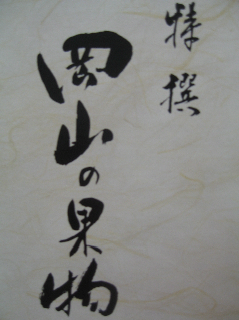 特撰
岡山の果物